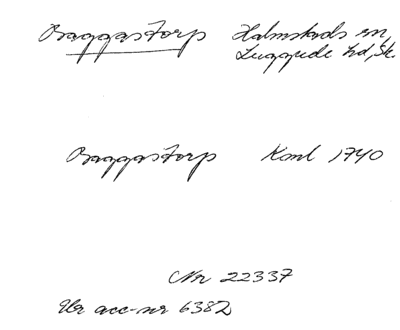 Baggastorp Halmstads sn,
Luggude hd, Sk.
Baggastorp Koml 1740
Nr 22337
Ur acc-nr 6382